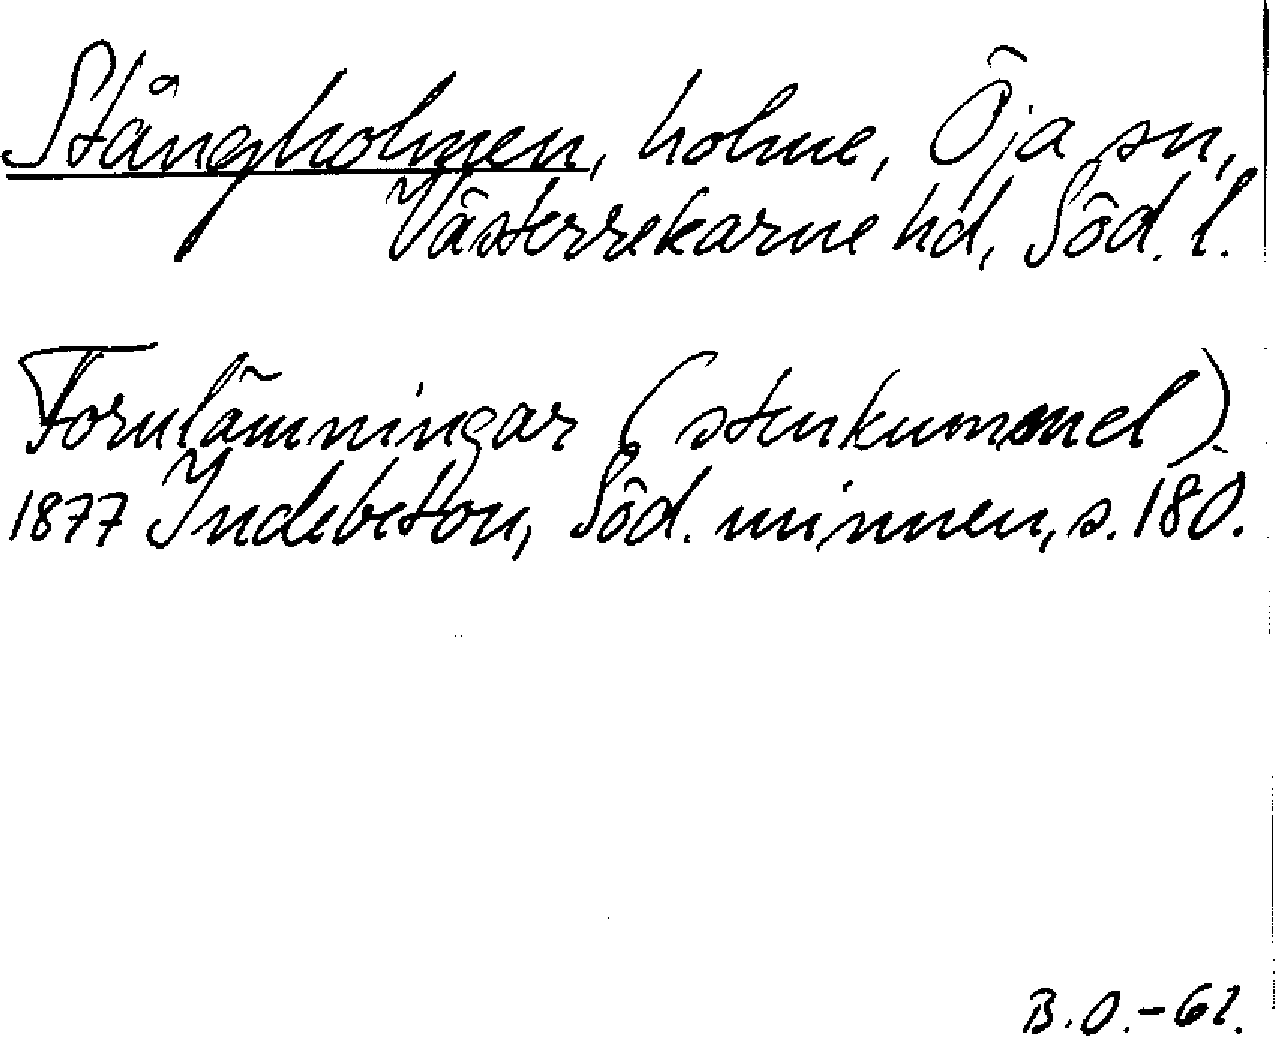 Stångholmen, holme, Öja sn,
Västerrekarne hd, Söd. l.
Fornlämningar (stenkummel).
1877 Indebetou, Söd. minnen, s. 180.
B.O.-62.